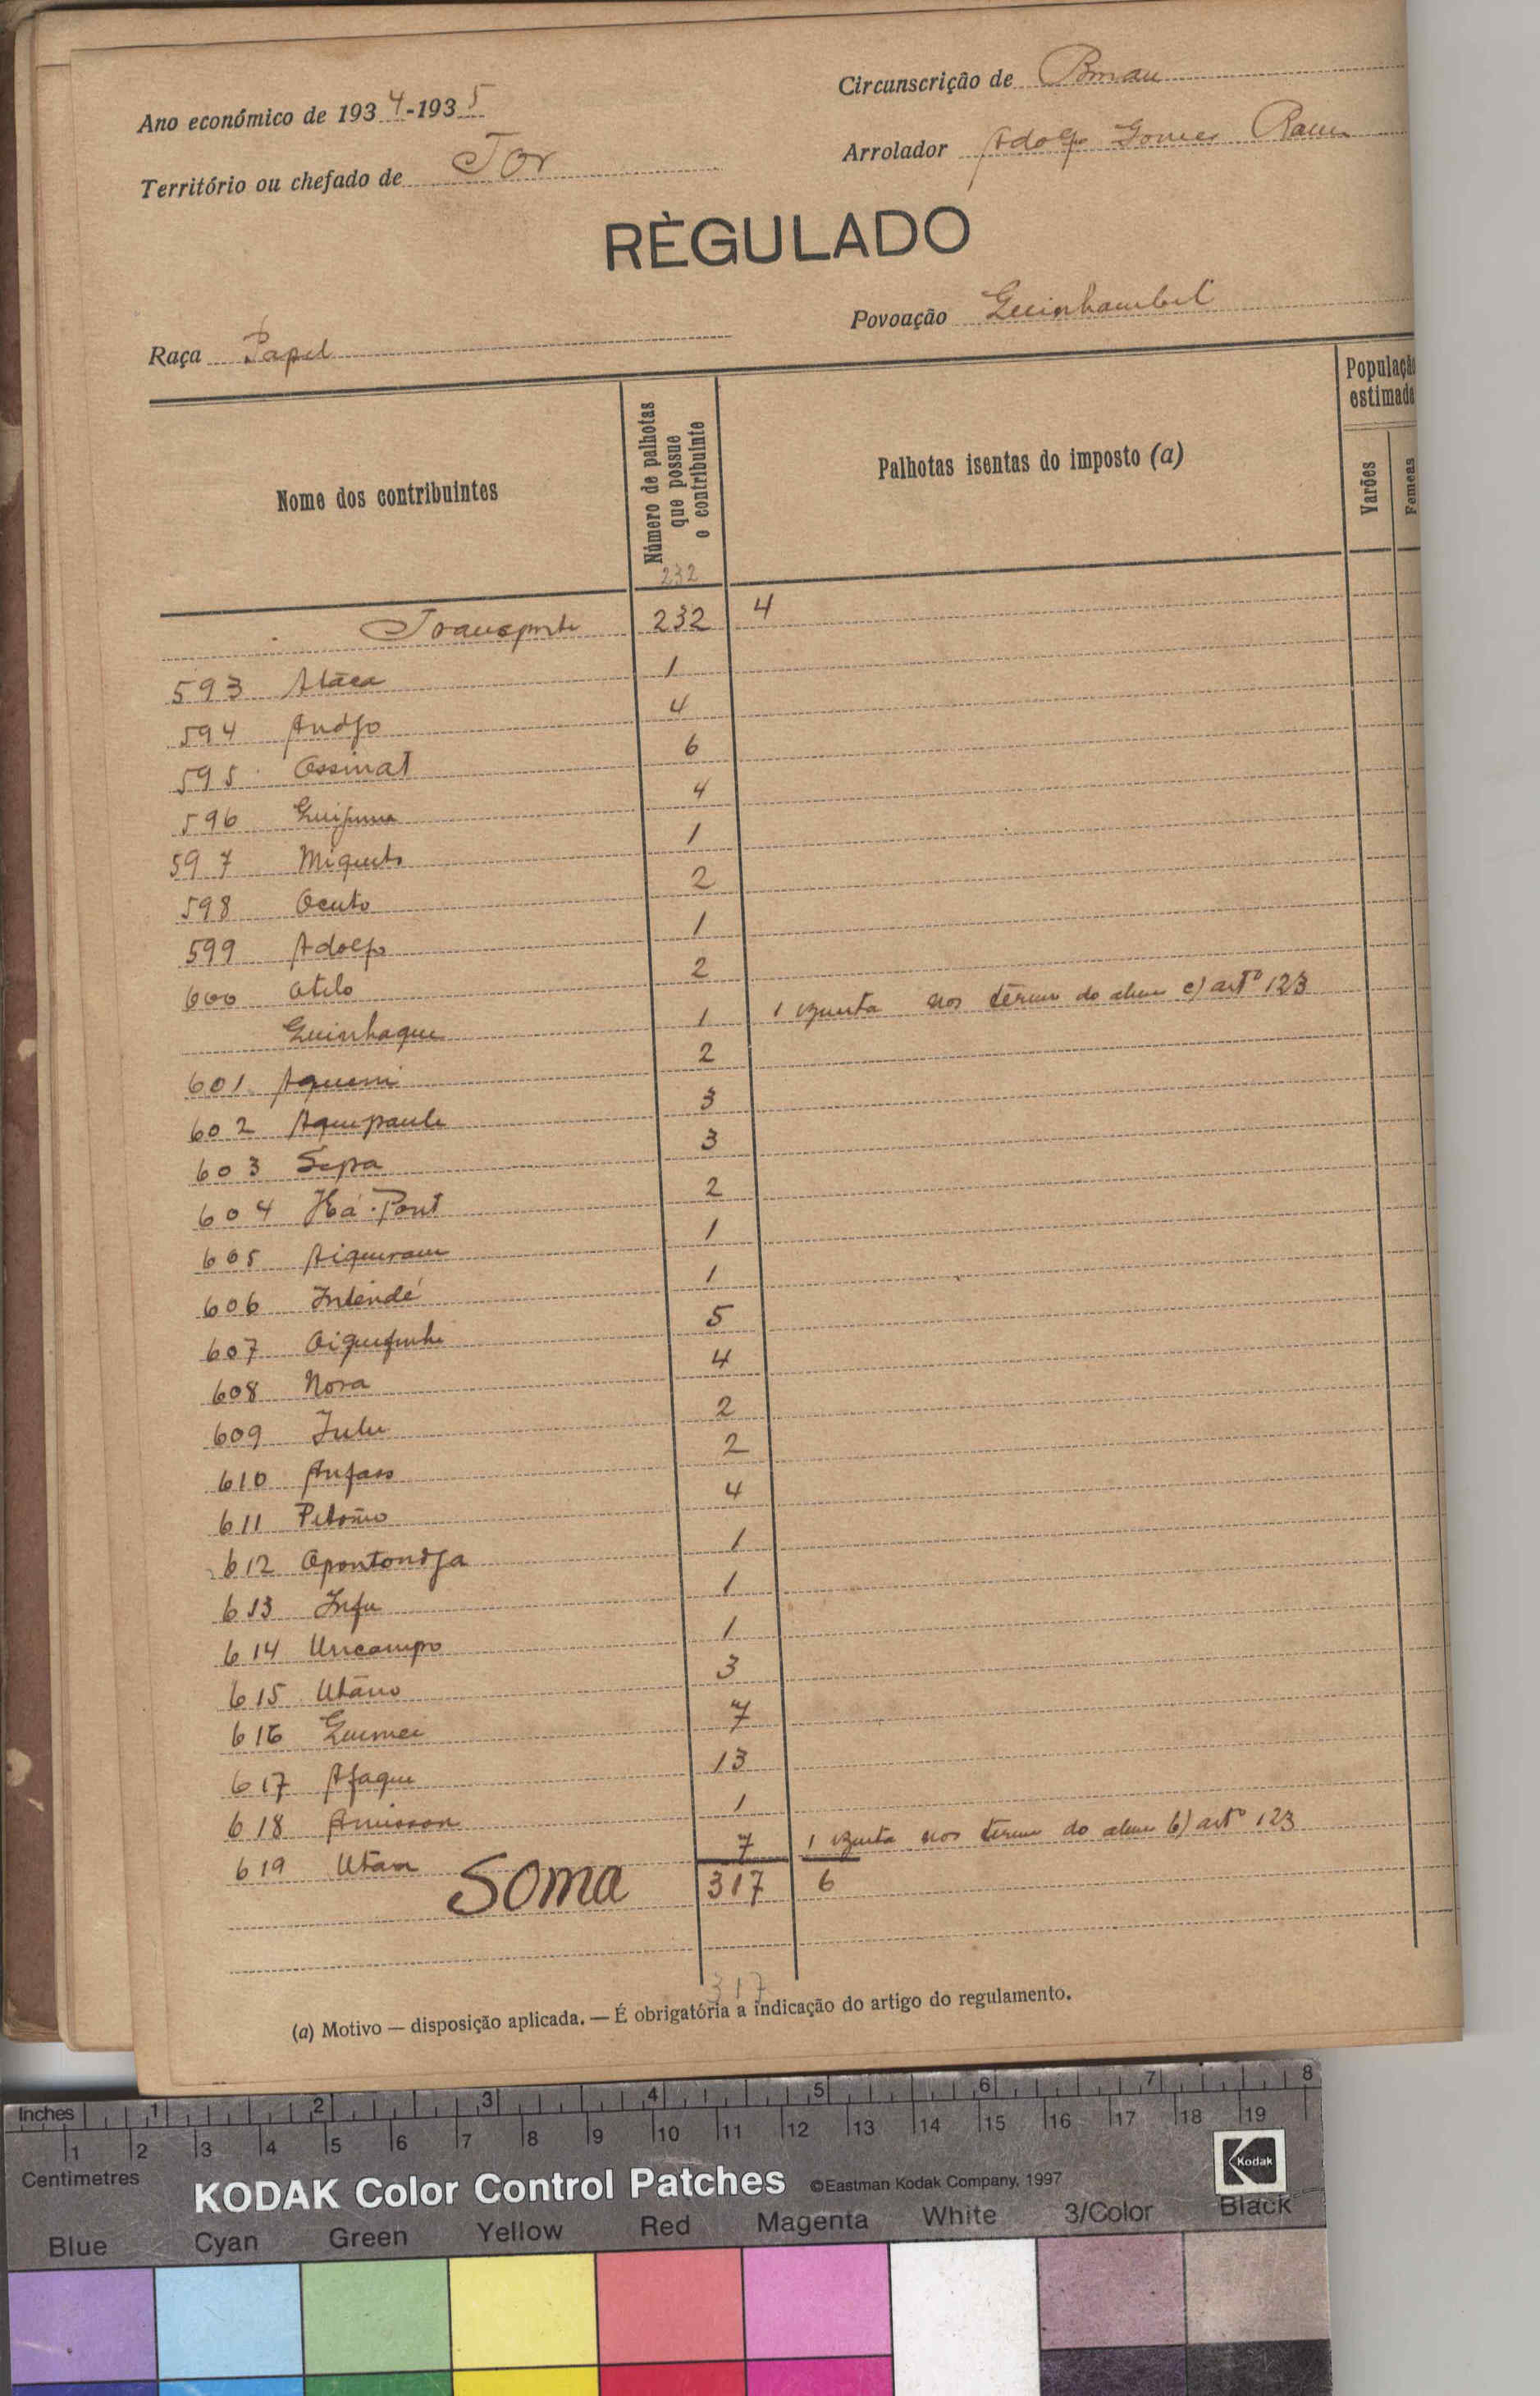 Ano económico de 1934-1935
Circunscrição de
Território ou chefado de Tor
Arrolador Adolfo Gomes
RÈGULADO
Raça Papel
Povoação Guinhambel
Nome dos contribuintes
Número de palhotas que possue o contribuinte
Palhotas isentas do imposto (a)
População estimada
Varões
Femeas
232
Transporte 232 4
593 Ataca 1
594 Andjo 4
595 Ossinat 6
596 4
597 Miquito 1
598 Ocuto 2
599 Adolfo 1
600 Otilo 2
Guinhaque 1 1 izenta nos têrmos do alinea c) artº 123
601 Aqueni 2
602 Aquepaule 3
603 Sepa 3
604 Há-Pont 2
605 1
606 Intendé 1
607 5
608 Nora 4
609 2
610 Anfass 2
611 4
612 Opontondja 1
613 Infu 1
614 Uncampo 1
615 Utano 3
616 7
617 Afaque 13
618 1
619 Utan 7 1 izenta nos têrmos do alinea b) artº 123
Soma 317 6
317
(a) Motivo — disposição aplicada. — É obrigatória a indicação do artigo do regulamento.
Inches 1 2 3 4 5 6 7 8
1 2 3 4 5 6 7 8 9 10 11 12 13 14 15 16 17 18 19
Centimetres
KODAK Color Control Patches ©Eastman Kodak Company, 1997 Kodak
Blue Cyan Green Yellow Red Magenta White 3/Color Black